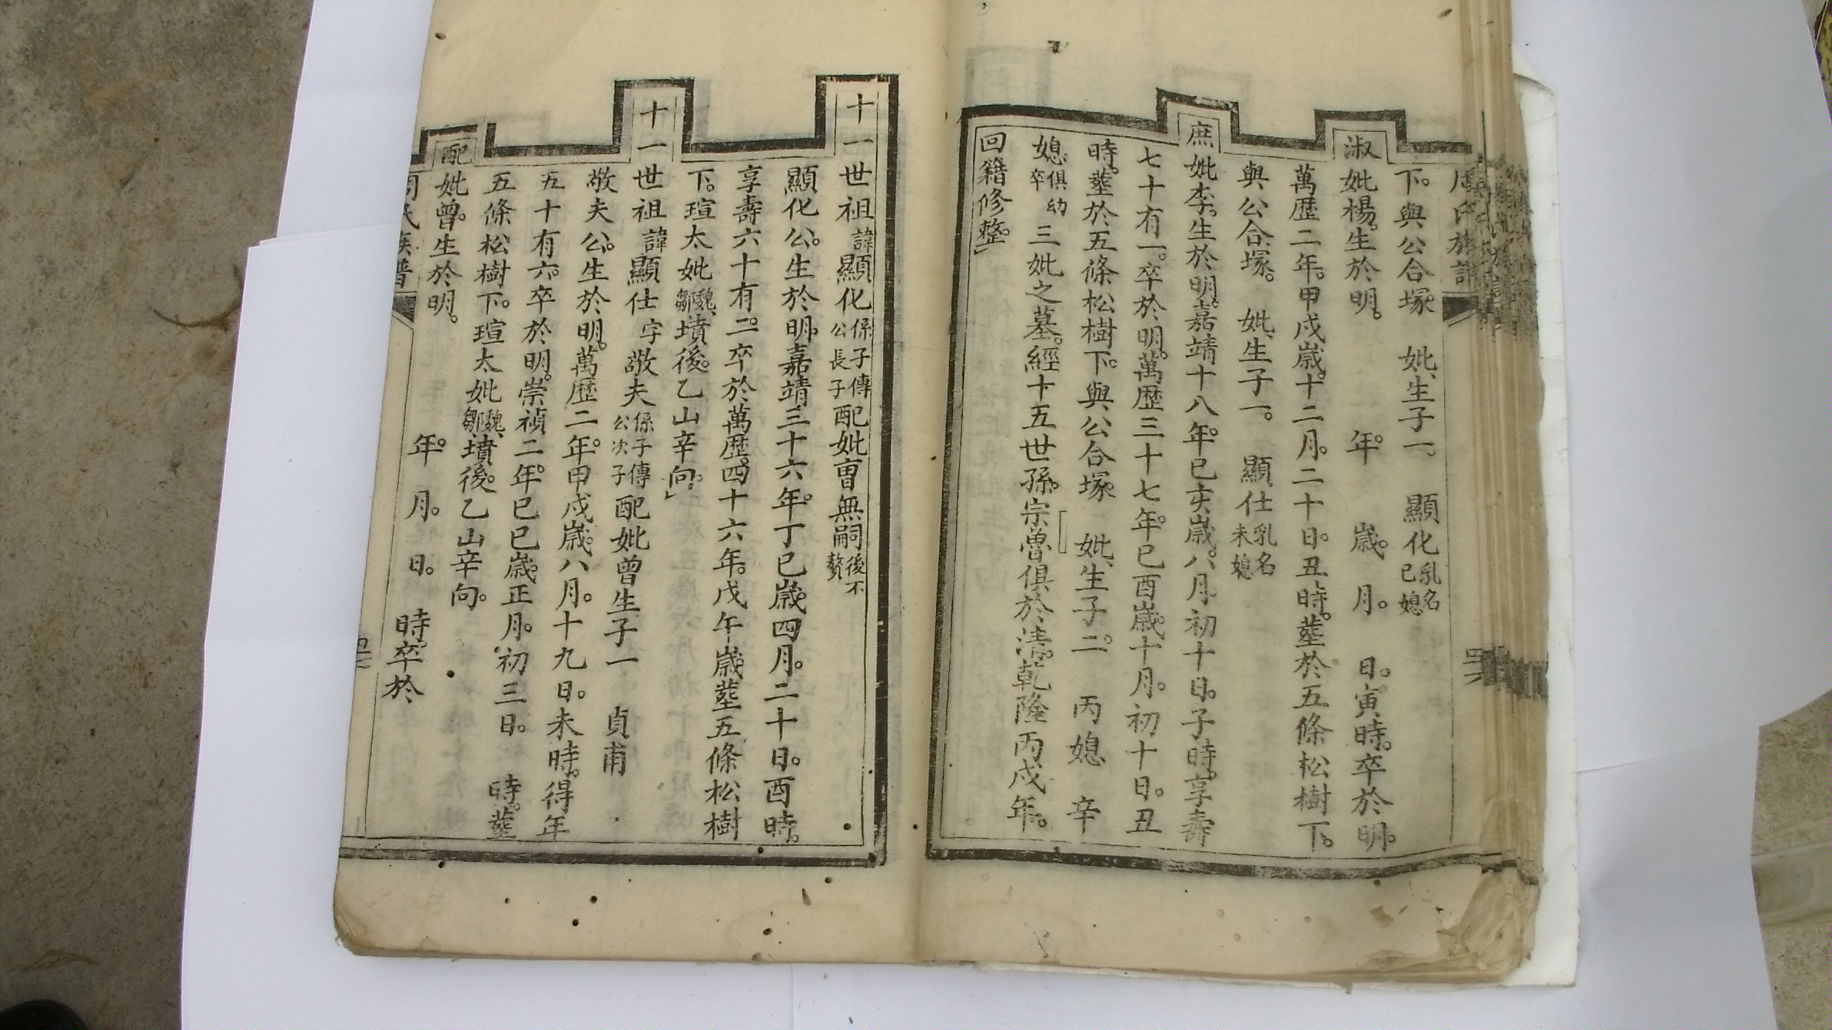 下。與公合塚 妣生子一。 顯化乳名已媳
淑妣楊。生於明。 年。 歲。 月。 日。寅時。卒於明。
萬歷二年。甲戌歲。十二月。二十日。丑時。塟於五條松樹下。
與公合塚。 妣生子一。 顯仕乳名未媳
庶妣李。生於明。嘉靖十八年。已亥歲。八月初十日。子時。享壽
七十有一。卒於明。萬歷三十七年。已酉歲。十月。初十日。丑
時。塟於五條松樹下。與公合塚。 妣生子二。 丙媳 辛
媳俱幼卒 三妣之墓。經十五世孫。宗魯俱於清。乾隆丙戌年。
回籍修整。
十一世祖諱顯化係子傳公長子配妣曾無嗣後不贅
顯化公。生於明。嘉靖三十六年。丁已歲。四月。二十日。酉時。
享壽六十有二。卒於萬歷。四十六年。戊午歲。塟五條松樹
下。瑄太妣魏鄒墳後。乙山辛向。
十一世祖諱顯仕字敬夫係子傳公次子配妣曾生子一 貞甫
敬夫公。生於明。萬歷二年。甲戌歲。八月。十九日。未時。得年
五十有六。卒於明。崇禎二年。已已歲。正月。初三日。 時。塟
五條松樹下。瑄太妣魏鄒墳後。乙山辛向。
配妣曾。生於明。 年。 月。 日。 時。卒於
周氏族譜